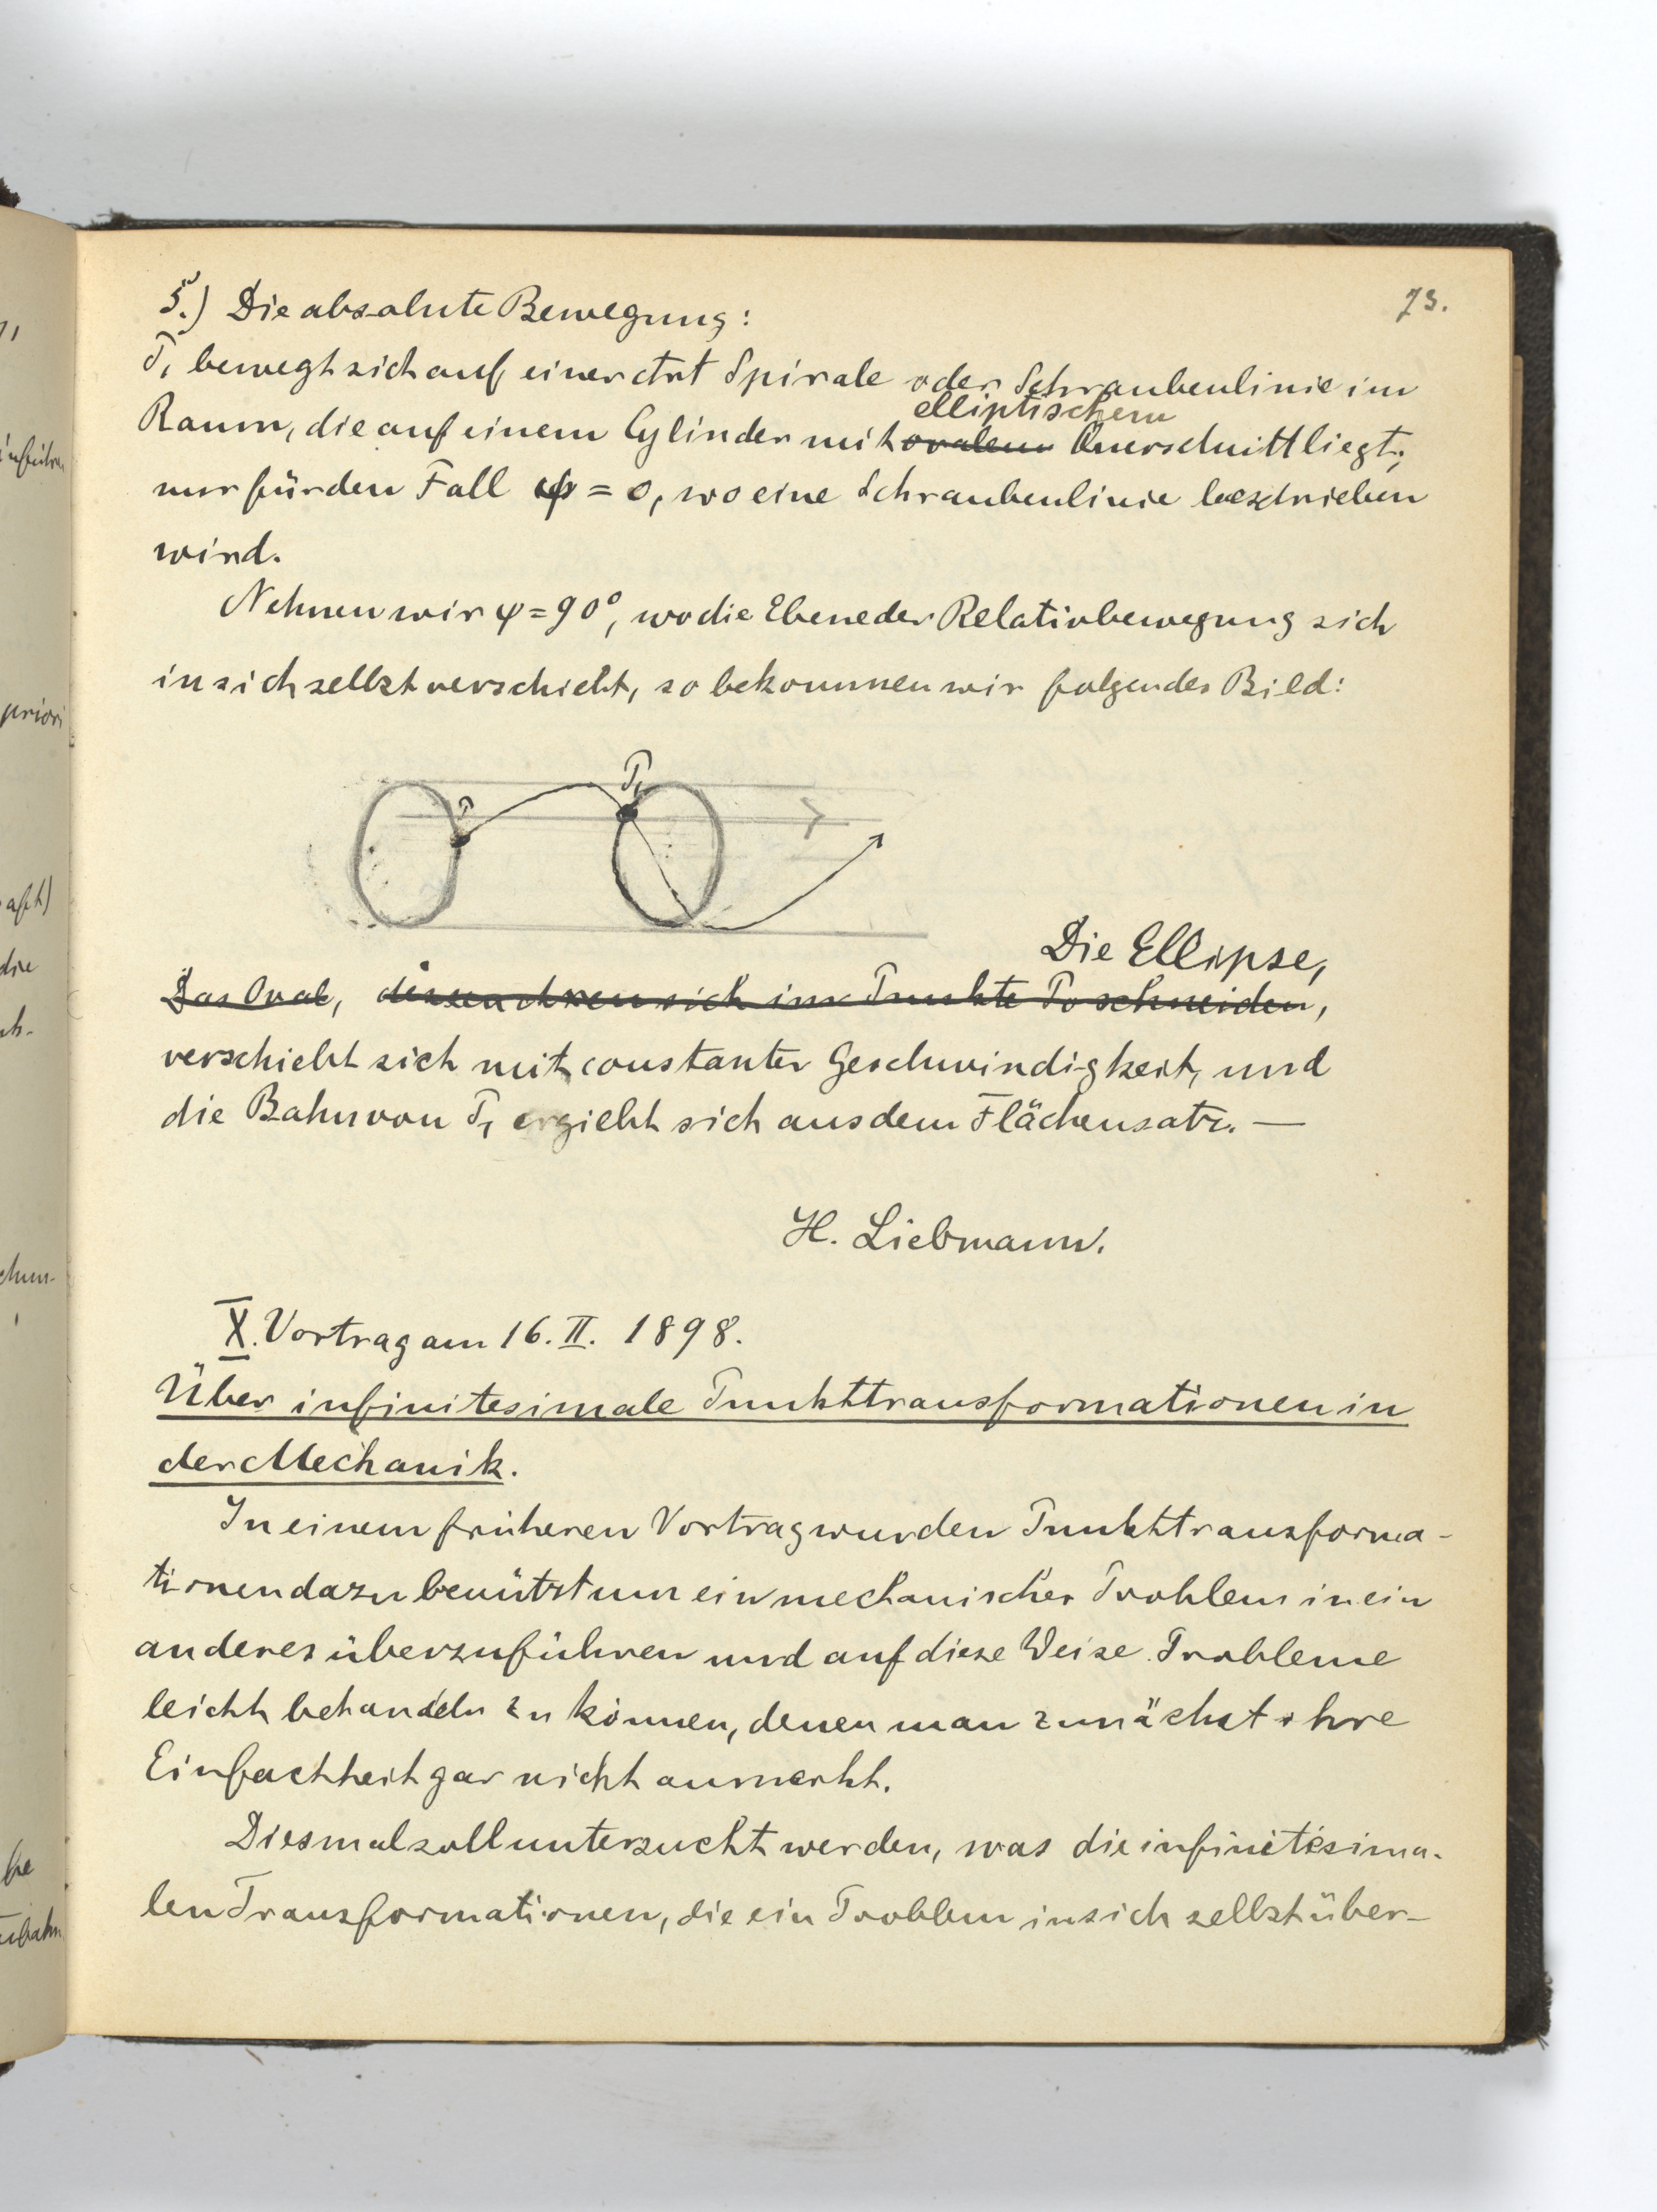 73.
5.) Die absolute Bewegung:
P₁ bewegt sich auf einer Art Spirale oder Schraubenlinie im
elliptischem
Raum, die auf einem Cylinder mit ovalem Querschnitt liegt;
nur für den Fall φ = 0, wo eine Schraubenlinie beschrieben
wird.
Nehmen wir φ = 90°, wo die Ebene der Relativbewegung sich
in sich selbst verschiebt, so bekommen wir folgendes Bild:
P P₁
Die Ellipse,
Das Oval, dessen Axen sich im Punkte P₀ schneiden,
verschiebt sich mit constanter Geschwindigkeit, und
die Bahn von P₁ ergiebt sich aus dem Flächensatz. —
H. Liebmann.
X. Vortrag am 16. II. 1898.
Über infinitesimale Punkttransformationen in
der Mechanik.
In einem früheren Vortrag wurden Punkttransforma-
tionen dazu benützt um ein mechanisches Problem in ein
anderes überzuführen und auf diese Weise Probleme
leicht behandeln zu können, denen man zunächst ihre
Einfachheit gar nicht anmerkt.
Diesmal soll untersucht werden, was die infinitesima-
len Transformationen, die ein Problem in sich selbst über-
priori